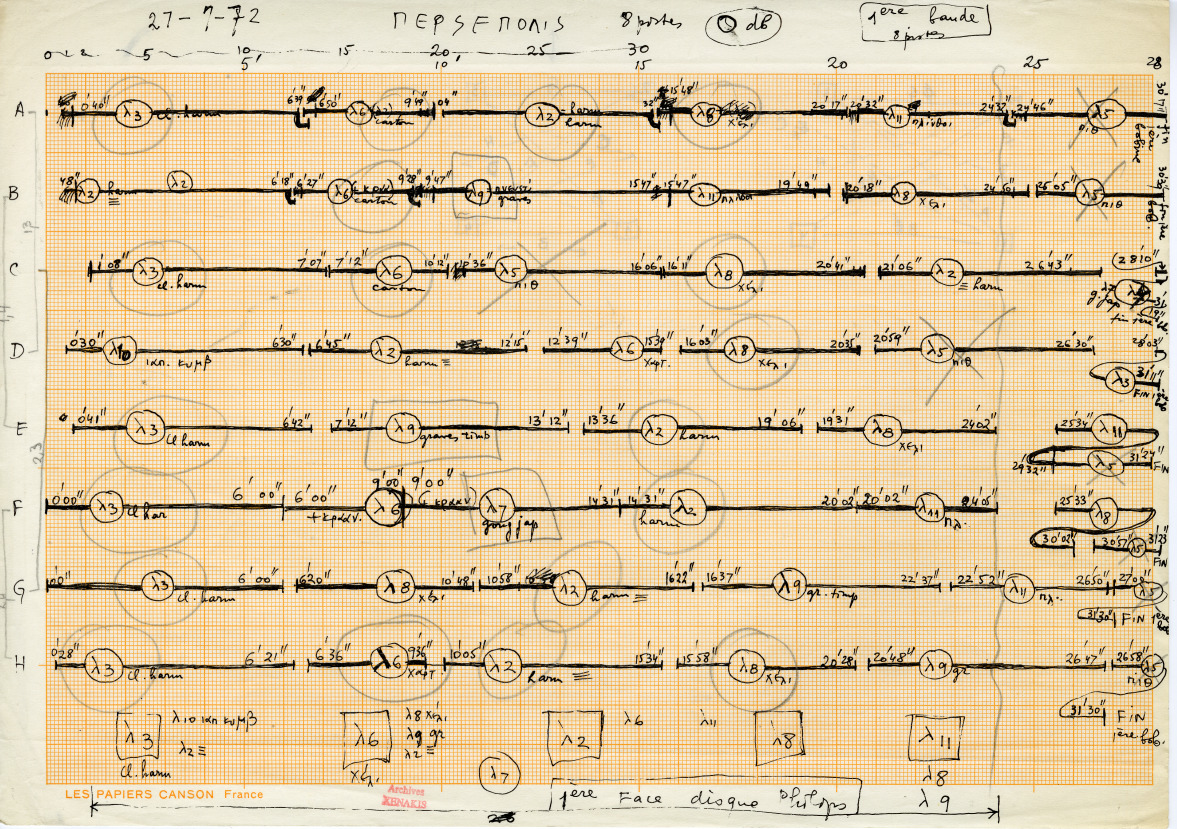 27-7-72 ΠΕΡΣΕΠΟΛΙΣ 8 postes 0 db 1ère bande 8 postes
0 1 2 5 10' 15 20' 25 30
5' 15 20 25 28
A 0'40" λ3 cl. harm 6'39" 6'50" λ6 carton 9'49" 04" λ2 harm harm 32" 15'48" λ8 χελι 20'17" 20'32" λ11 πλινθοι 24'32" 24'46" λ5 πιθ
B 48" λ2 harm ≡ λ2 6'18" 6'27" λ6 carton 9'28" 9'47" λ9 graves 15'47" 15'47" λ11 19'49" 20'18" λ8 χελι 24'50" 26'05" λ5 πιθ
C 1'08" λ3 cl. harm 7'07" 7'12" λ6 carton 10'12" 10'36" λ5 πιθ 16'06" 16'11" λ8 χελι 20'41" 21'06" λ2 ≡ harm 26'43" (28'10")
λ2 g. jap
D 0'30" λ10 ιαπ. κυμβ 6'30" 6'45" λ2 harm ≡ 12'15" 12'39" λ6 χαρτ. 15'39" 16'03" λ8 χελι 20'35" 20'59" λ5 πιθ 26'30" 28'03"
λ3 31'11" FIN
E 0'41" λ3 cl harm 6'42" 7'12" λ9 graves timb 13'12" 13'36" λ2 harm 19'06" 19'31" λ8 χελι 24'02" 25'34" λ11
29'32" λ5 31'24" FIN
F 0'00" λ3 cl har 6'00" 6'00" + κρααν. 9'00" λ6 9'00" λ7 gong jap 14'31" 14'31" harm λ2 20'02" 20'02" λ11 πλ. 24'05" 25'33" λ8
30'02" 30'57" λ5 31'23 FIN
G λ3 cl. harm 6'00" 6'20" λ8 χελι 10'48" 10'58" λ2 harm ≡ 16'22" 16'37" λ9 gr. timp 22'37" 22'52" λ11 πλ. 26'50" 27'00" λ5
31'30" FIN 1ère bob
H 0'28" λ3 cl. harm 6'21" 6'36" λ6 9'36" χαρτ 10'05" λ2 harm ≡ 15'34" 15'58" λ8 χελι 20'28" 20'48" λ9 gr 26'47" 26'58" λ5 πιθ
31'30" FIN 1ère bob.
λ3 λ10 ιαπ κυμβ λ6 λ8 χελι λ2 λ6 λ11 λ8 λ11
λ2 ≡ λ9 gr
λ2 ≡
cl. harm χελι λ7 λ8
LES PAPIERS CANSON France
Archives XENAKIS
1ère Face disque Philips λ9